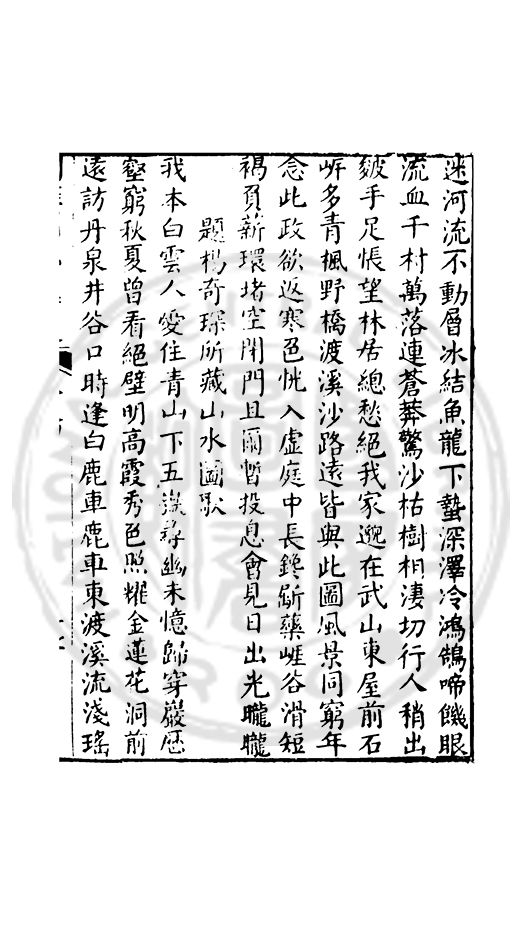 迷河流不動層冰結魚龍下蟄深澤冷鴻鵠啼饑眼
流血千村萬落連蒼莽驚沙枯樹相淒切行人稍出
皴手足悵望林居總愁絕我家邈在武山東屋前石
㟁多青楓野橋渡溪沙路遠皆與此圖風景同窮年
念此政欲返寒色恍入虛庭中長鑱斸藥崕谷滑短
褐負薪環堵空閉門且爾暫投息會見日出光曨曨
題楊奇琛所藏山水圖歌
我本白雲人愛住青山下五嶽尋幽未憶歸穿巖歷
壑窮秋夏曾看絕壁明高霞秀色照耀金蓮花洞前
遠訪丹泉井谷口時逢白鹿車鹿車東渡溪流淺瑤